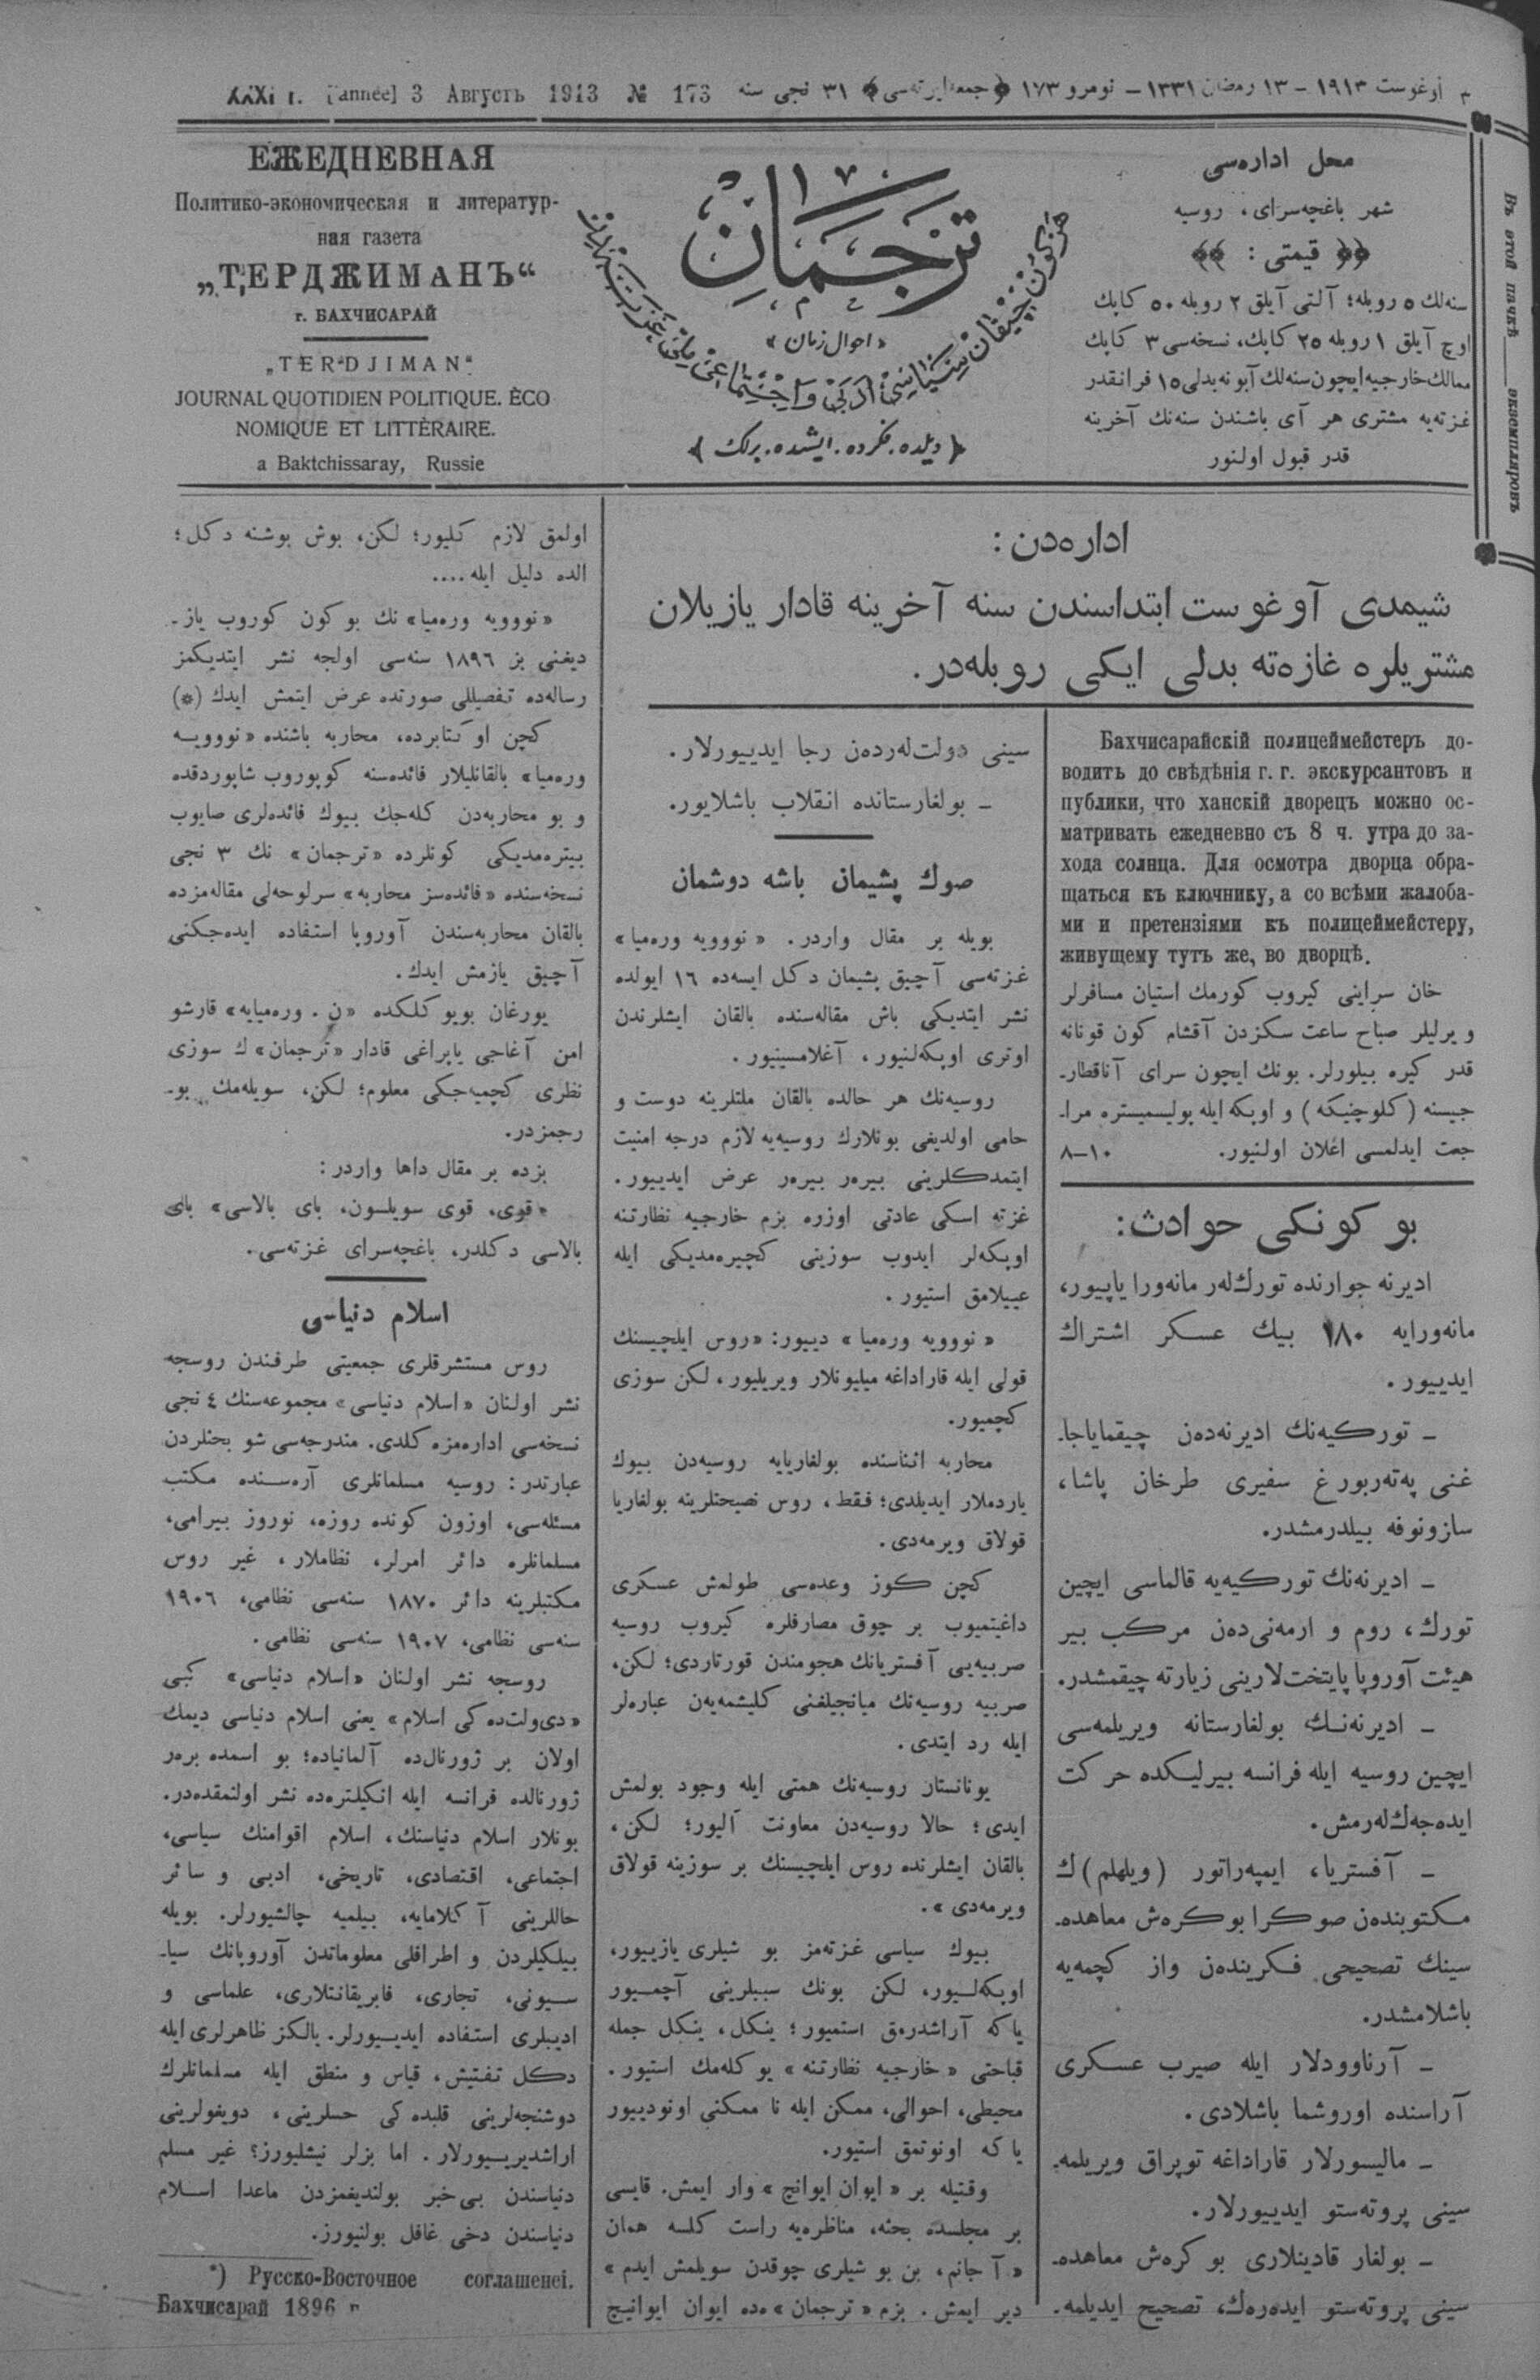 XXXI г. [année] 3 Августъ 1913 № 173
٣ اوغوست ١٩١٣ – ١٣ رمضان ١٣٣١ – نومرو ١٧٣ ﴿جمعه‌ایرته‌سی﴾ ٣١ نجی سنه
ЕЖЕДНЕВНАЯ
Политико-экономическая и литератур-
ная газета
„ТЕРДЖИМАНЪ“
г. БАХЧИСАРАЙ
„TERDJIMAN“
JOURNAL QUOTIDIEN POLITIQUE. ÈCO
NOMIQUE ET LITTÈRAIRE.
a Baktchissaray, Russie
ترجمان
«احوال زمان»
هر كون چیقان سیاسی، ادبی و اجتماعی ملی غزته‌در
﴿ دیلده. فكرده. ایشده. برلك ﴾
محل اداره‌سی
شهر باغچه‌سرای، روسیه
﴿﴿ قیمتی: ﴾﴾
سنه‌لك ٥ روبله؛ آلتی آیلق ٢ روبله ٥٠ كاپك
اوچ آیلق ١ روبله ٢٥ كاپك، نسخه‌سی ٣ كاپك
ممالك خارجیه ایچون سنه‌لك آبونه بدلی ١٥ فرانقدر
غزته‌یه مشتری هر آی باشندن سنه‌نك آخرینه
قدر قبول اولنور
Въ этой пачкѣ ____ экземпляровъ
اداره‌دن:
شیمدی آوغوست ابتداسندن سنه آخرینه قادار یازیلان
مشتریلره غازه‌ته بدلی ایكی روبله‌در.
Бахчисарайскій полицеймейстеръ до-
водитъ до свѣдѣнія г. г. экскурсантовъ и
публики, что ханскій дворецъ можно ос-
матривать ежедневно съ 8 ч. утра до за-
хода солнца. Для осмотра дворца обра-
щаться къ ключнику, а со всѣми жалоба-
ми и претензіями къ полицеймейстеру,
живущему тутъ же, во дворцѣ.
خان سراینی كیروب كورمك استیان مسافرلر
و یرلیلر صباح ساعت سكزدن آقشام كون قونانه
قدر كیره بیلورلر. بونك ایچون سرای آناقطار-
جیسنه (كلوچنیكه) و اوپكه ایله پولیسمیستره مرا-
جعت ایدلمسی اعلان اولنیور. ١٠–٨
بو كونكی حوادث:
ادیرنه جوارنده تورك‌لەر مانه‌ورا یاپیور،
مانه‌ورایه ١٨٠ بیك عسكر اشتراك
ایدییور.
– توركیه‌نك ادیرنه‌دەن چیقمایاجا-
غنی په‌ته‌ربورغ سفیری طرخان پاشا،
سازونوفه بیلدرمشدر.
– ادیرنه‌نك توركیه‌یه قالماسی ایچین
تورك، روم و ارمه‌نی‌دەن مركب بیر
هیئت آوروپا پایتخت‌لارینی زیارته چیقمشدر.
– ادیرنه‌نك بولغارستانه ویریلمه‌سی
ایچین روسیه ایله فرانسه بیرلیكده حركت
ایده‌جەك‌لەرمش.
– آفستریا، ایمپه‌راتور (ویلهلم)ك
مكتوبندەن صوكرا بوكرەش معاهده-
سینك تصحیحی فكریندەن واز كچمه‌یه
باشلامشدر.
– آرناوودلار ایله صیرب عسكری
آراسنده اوروشما باشلادی.
– مالیسورلار قاراداغه توپراق ویریلمه-
سینی پروته‌ستو ایدییورلار.
– بولغار قادینلاری بوكرەش معاهده-
سینی پروته‌ستو ایدەرەك، تصحیح ایدیلمه-
سینی دولت‌لەردەن رجا ایدییورلار.
– بولغارستانده انقلاب باشلایور.
صوك پشیمان باشه دوشمان
بویله بر مقال واردر. «نوویه ورەمیا»
غزته‌سی آچیق پشیمان دكل ایسه‌ده ١٦ ایولده
نشر ایتدیكی باش مقاله‌سنده بالقان ایشلرندن
اوتری اوپكه‌لنیور، آغلامسینیور.
روسیه‌نك هر حالده بالقان ملتلرینه دوست و
حامی اولدیغی بونلارك روسیه‌یه لازم درجه امنیت
ایتمدكلرینی بیرەر بیرەر عرض ایدییور.
غزته اسكی عادتی اوزره بزم خارجیه نظارتنه
اوپكه‌لر ایدوب سوزینی كچیرەمدیكی ایله
عیبلامق استیور.
«نوویه ورەمیا» دییور: «روس ایلچیسنك
قولی ایله قاراداغه میلیونلار ویریلیور، لكن سوزی
كچمیور.
محاربه اثناسنده بولغاریایه روسیه‌دن بیوك
یاردملار ایدیلدی؛ فقط، روس نصیحتلرینه بولغاریا
قولاق ویرمه‌دی.
كچن كوز وعده‌سی طولمش عسكری
داغیتمیوب بر چوق مصارفلره كیروب روسیه
صربیه‌یی آفستریانك هجومندن قورتاردی؛ لكن،
صربیه روسیه‌نك میانجیلغنی كلیشمه‌یەن عبارەلر
ایله رد ایتدی.
یونانستان روسیه‌نك همتی ایله وجود بولمش
ایدی؛ حالا روسیه‌دن معاونت آلیور؛ لكن،
بالقان ایشلرنده روس ایلچیسنك بر سوزینه قولاق
ویرمه‌دی».
بیوك سیاسی غزته‌مز بو شیلری یازییور،
اوپكه‌لییور، لكن بونك سببلرینی آچمیور
یاكه آراشدرمق استمیور؛ ینكل، ینكل جمله
قباحتی «خارجیه نظارتنه» یوكله‌مك استیور.
محیطی، احوالی، ممكن ایله نا ممكنی اونودییور
یاكه اونوتمق استیور.
وقتیله بر «ایوان ایوانچ» وار ایمش. قایسی
بر مجلسده بحثه، مناظره‌یه راست كلسه همان
«آ جانم، بن بو شیلری چوقدن سویلمش ایدم»
دیر ایمش. بزم «ترجمان» ده ایوان ایوانیچ
اولمق لازم كلیور؛ لكن، بوش بوشنه دكل؛
الده دلیل ایله....
«نوویه ورەمیا» نك بوكون كوروب یاز-
دیغنی بز ١٨٩٦ سنه‌سی اولجه نشر ایتدیكمز
رساله‌ده تفصیللی صورتده عرض ایتمش ایدك (*)
كچن اوكتابرده، محاربه باشنده «نوویه
ورەمیا» بالقانلیلار فائده‌سنه كوپوروب شاپوردقده
و بو محاربه‌دن كله‌جك بیوك فائده‌لری صایوب
بیترەمدیكی كونلرده «ترجمان» نك ٣ نجی
نسخه‌سنده «فائده‌سز محاربه» سرلوحه‌لی مقاله‌مزده
بالقان محاربه‌سندن آوروپا استفاده ایده‌جكنی
آچیق یازمش ایدك.
یورغان بویو كلكده «ن. ورەمیایه» قارشو
امن آغاجی یاپراغی قادار «ترجمان» ك سوزی
نظری كچمیه‌جكی معلوم؛ لكن، سویله‌مك بو-
رجمزدر.
بزده بر مقال داها واردر:
«قوی، قوی سویلسون، بای بالاسی» بای
بالاسی دكلدر، باغچه‌سرای غزته‌سی.
اسلام دنیاسی
روس مستشرقلری جمعیتی طرفندن روسجه
نشر اولنان «اسلام دنیاسی» مجموعه‌سنك ٤ نجی
نسخه‌سی اداره‌مزه كلدی. مندرجه‌سی شو بحثلردن
عبارتدر: روسیه مسلمانلری آره‌سنده مكتب
مسئله‌سی، اوزون كونده روزه، نوروز بیرامی،
مسلمانلره دائر امرلر، نظاملار، غیر روس
مكتبلرینه دائر ١٨٧٠ سنه‌سی نظامی، ١٩٠٦
سنه‌سی نظامی، ١٩٠٧ سنه‌سی نظامی.
روسجه نشر اولنان «اسلام دنیاسی» كبی
«دی‌ولت‌ده كی اسلام» یعنی اسلام دنیاسی دیمك
اولان بر ژورنال‌ده آلمانیاده؛ بو اسمده برەر
ژورنالده فرانسه ایله انكیلتره‌ده نشر اولنمقده‌در.
بونلار اسلام دنیاسنك، اسلام اقوامنك سیاسی،
اجتماعی، اقتصادی، تاریخی، ادبی و سائر
حاللرینی آكلامایه، بیلمیه چالشیورلر. بویله
بیلكیلردن و اطرافلی معلوماتدن آوروپانك سیا-
سیونی، تجاری، فابریقانتلاری، علماسی و
ادیبلری استفاده ایدییورلر. یالكز ظاهرلری ایله
دكل تفتیش، قیاس و منطق ایله مسلمانلرك
دوشنجه‌لرینی قلبده كی حسلرینی، دویغولرینی
اراشدیریورلار. اما بزلر نیشلیورز؟ غیر مسلم
دنیاسندن بی‌خبر بولندیغمزدن ماعدا اسلام
دنیاسندن دخی غافل بولنیورز.
*) Русско-Восточное соглашенеі.
Бахчисарай 1896 г